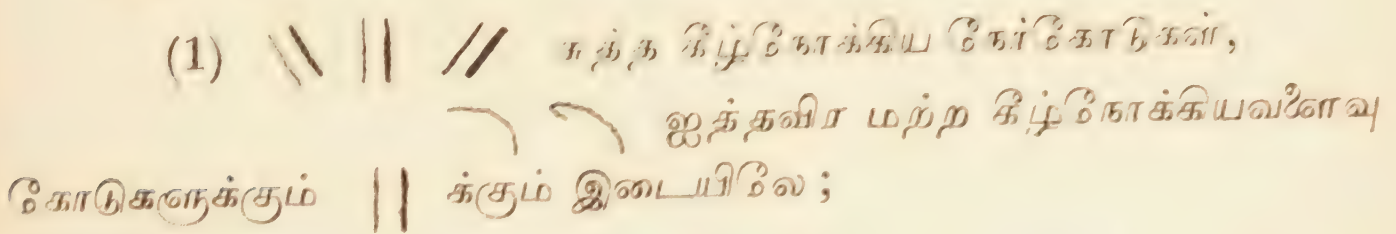 (1) \\ || // சுத்த கீழ்நோக்கிய நேர்கோடுகள்,
ஐத்தவிர மற்ற கீழ்நோக்கியவளைவு
கோடுகளுக்கும் || க்கும் இடையிலே ;